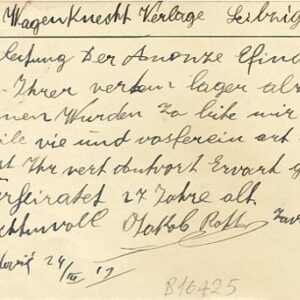 Wagenknecht Verlage Leibzig
leitung Der Anonze Efind
Ihrer vertem lager als
nen Wurden Zo bite mir
vie und vosferein art
Ihr vert antvort Ervart
27 Jahre alt
Jakob Roth
24/III 17
B16425